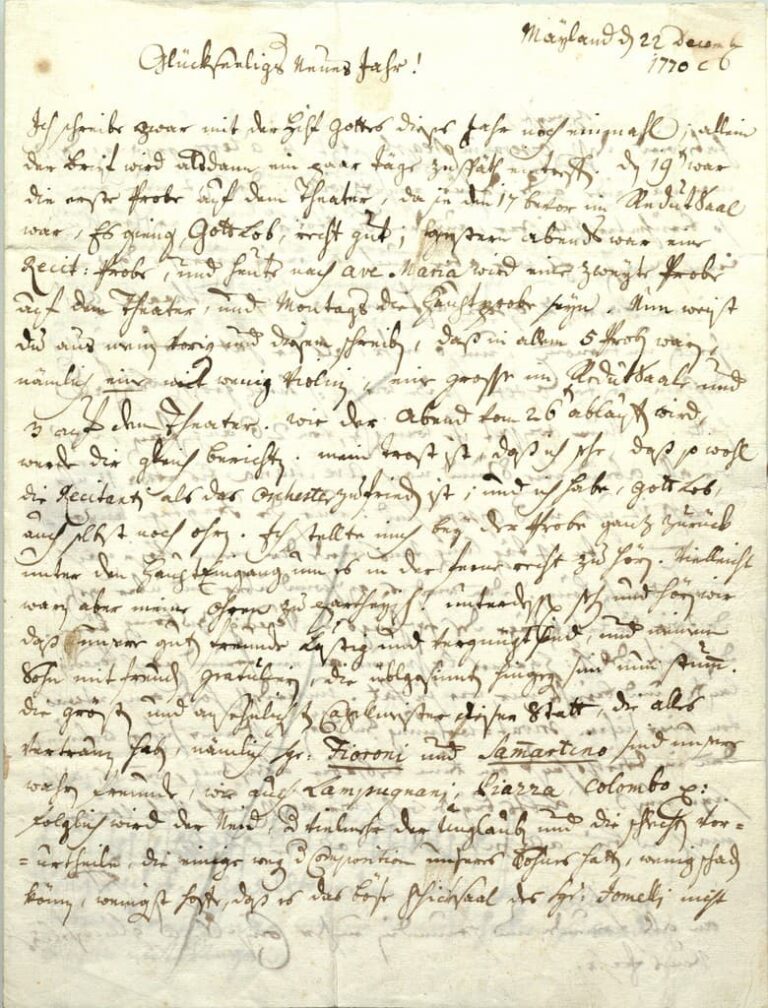 Mayland d 22 Decemb
1770
Glückseeligs Neues Jahr!
Ich schreibe zwar mit der Hilf Gottes dieses Jahr noch einmahl, allein
der Brief wird alsdann ein paar täge zu späth eintreffen. den 19ten war
die erste Probe auf dem Theater, da sie den 17 bevor im Redut Saal
war, Es gieng, Gott Lob, recht gut; gestern abends war eine
Recit: Probe, und heute nach ave Maria wird eine zweyte Probe
auf dem Theater, und Montags die Hauptprobe seyn. Nun weist
du aus mein vorig und diesem schreiben, daß in allem 5 Proben waren,
nämlich eine mit wenig Violin, eine grosse im Redut Saale und
3 auf dem Theater. wie der Abend vom 26ten ablaufen wird,
werde dir gleich berichten. mein trost ist, daß ich sehe, daß so wohl
die Recitanten als das Orchester zufrieden ist; und ich habe, Gott Lob,
auch selbst noch ohren. Ich stellte mich bey der Probe ganz zurück
unter den Haupt Eingang um es in der ferne recht zu hören. Vielleicht
waren aber meine Ohren zu partheyisch! unterdessen sehen und hören wir
daß unsere guten freunde Lustig und vergnügt sind, und meinem
Sohn mit freuden gratulieren, die übelgesinnten hingegen sind nun stumm.
die größten und ansehnlichsten Capelmeister dieser Statt, die alles
vertrauen haben, nämlich Sgr: Fioroni und Sammartino sind unsere
wahre freunde, wie auch Lampugnani, Piazza, Colombo p:
folglich wird der Neid, vielmehr der Unglaub und die schlechten Vor=
=urtheile, die einige weg Composition unsers Sohnes hatten, wenig schaden
können, wenigst hoffe, daß es das böse schicksaal des Sgr: Jomelli nicht